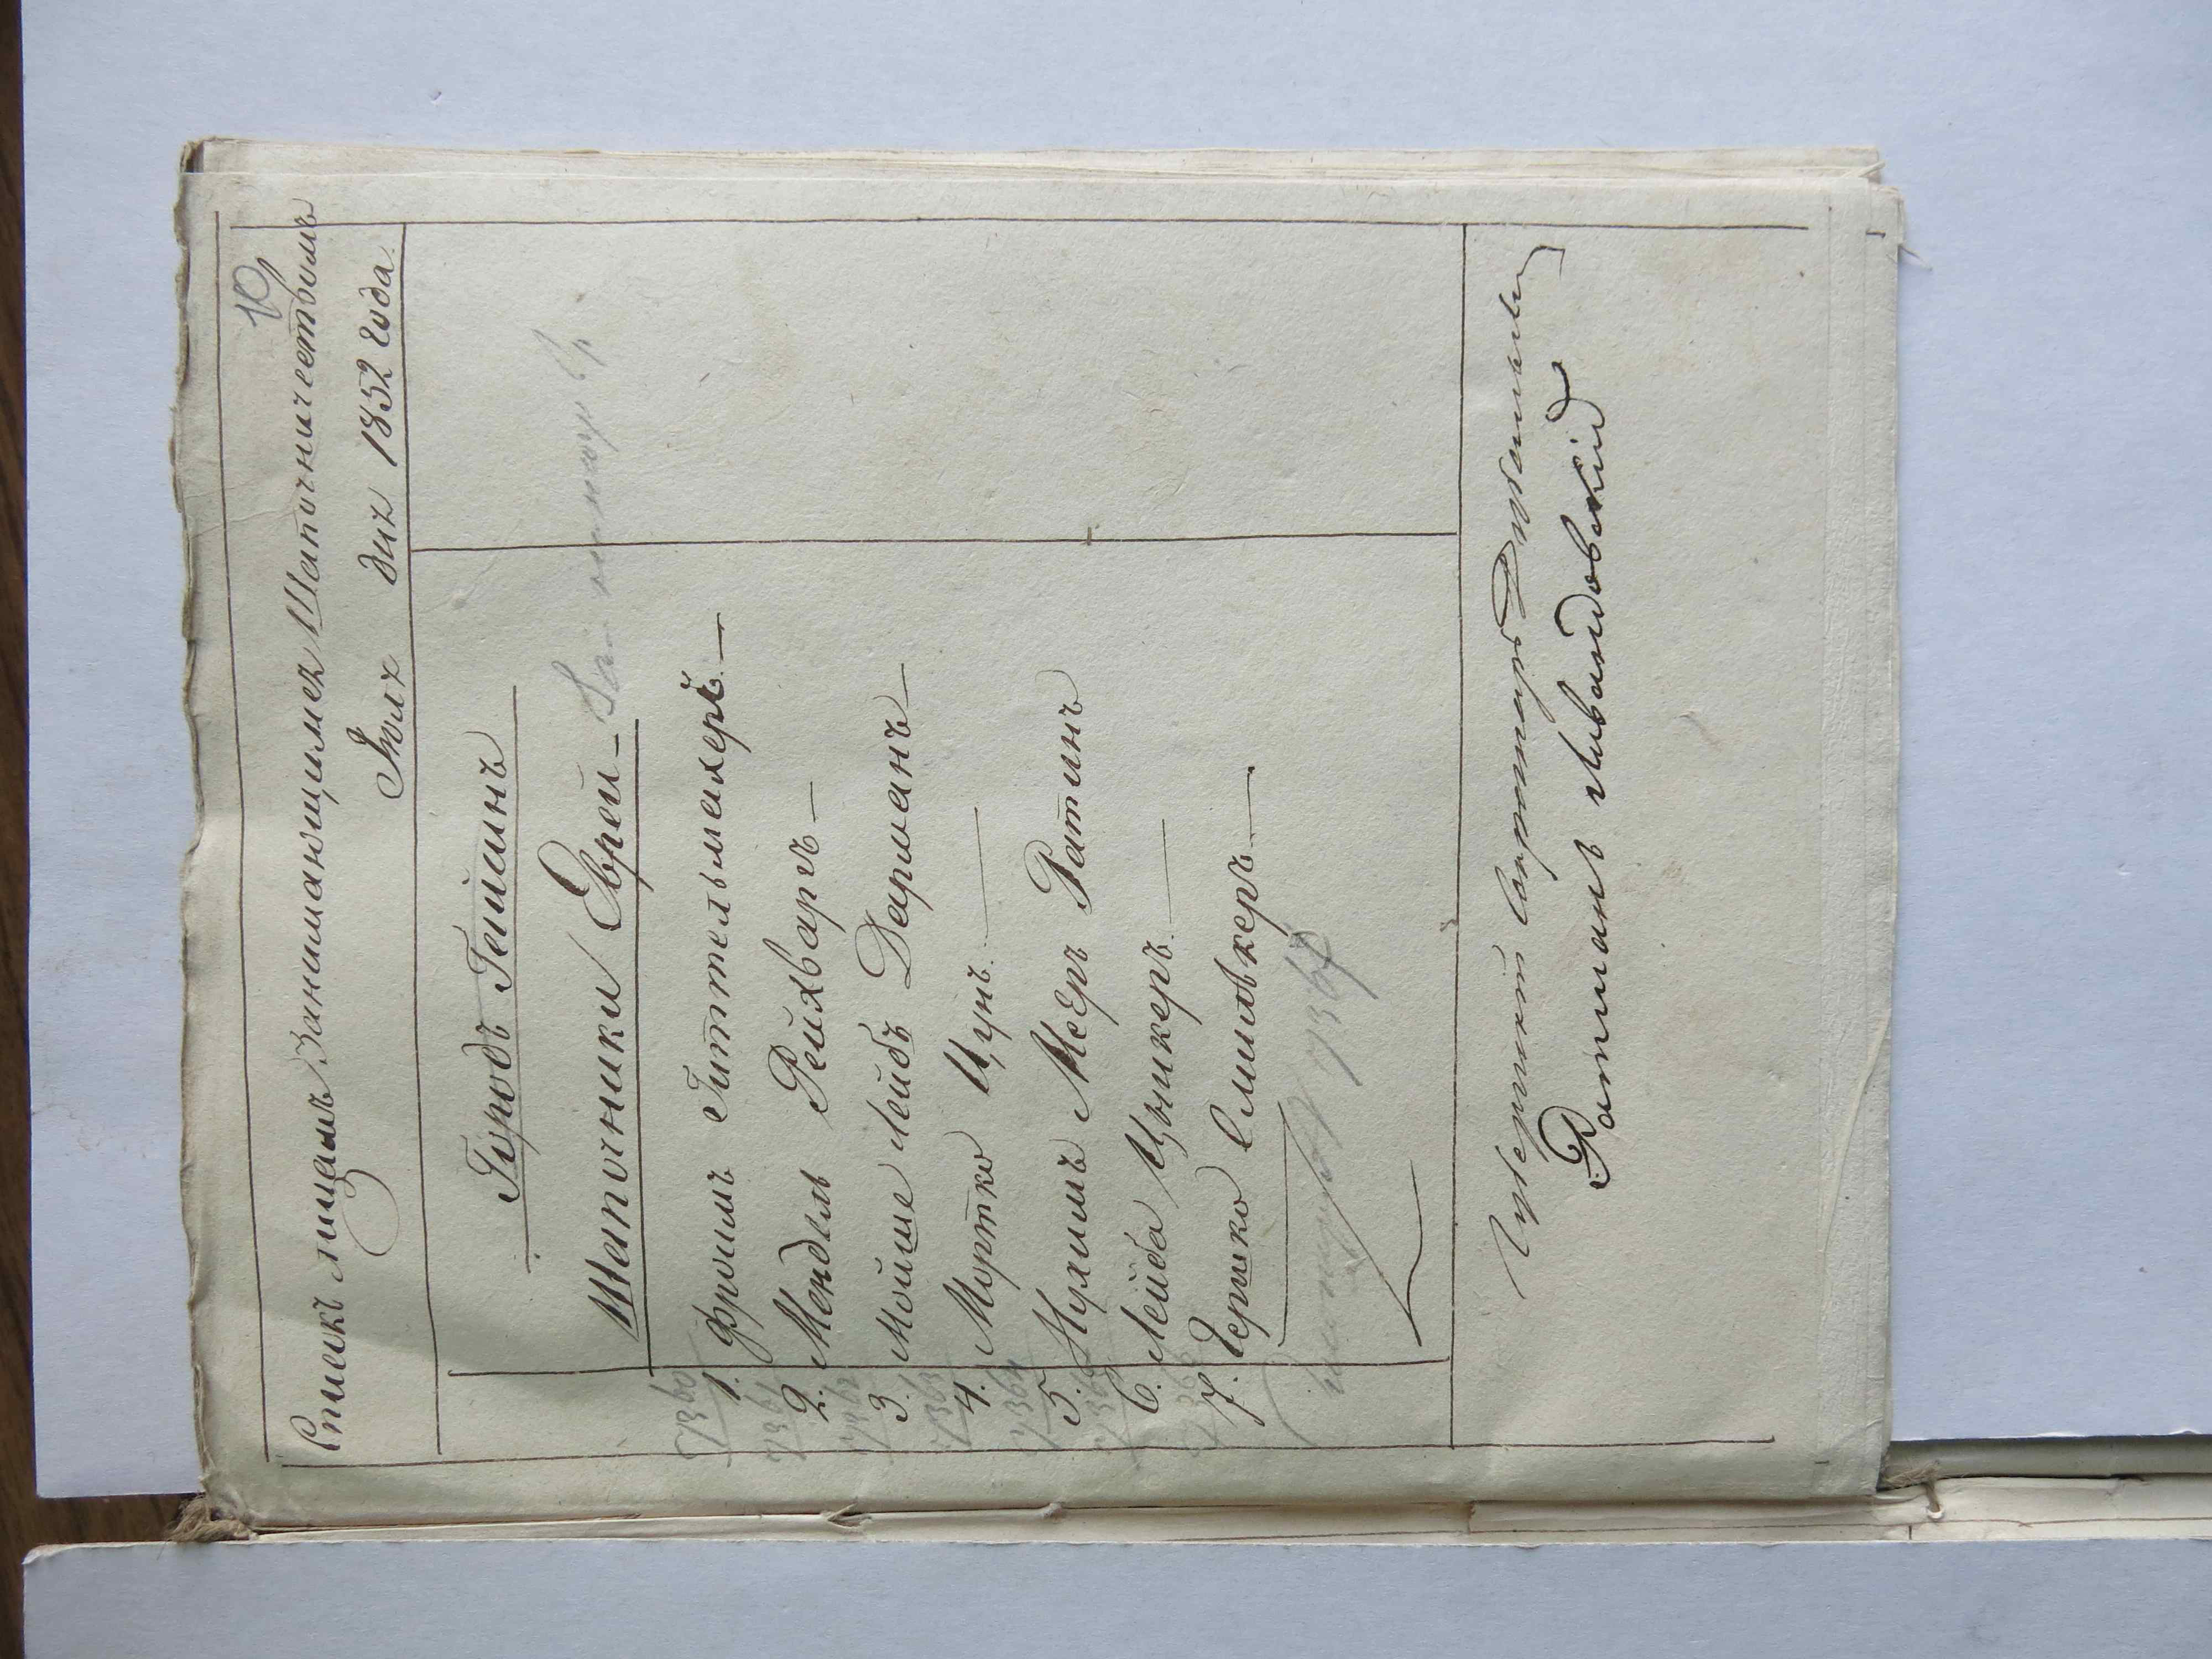 10
Списокъ лицамъ Занимающимся Шапочничествомъ
Іюня дня 1852 года.
Городъ Гайсинъ
Шапочники Евреи
7360 1. Фроимъ Гиттельмахеръ.
7361 2. Мендель Рейхваргъ
7362 3. Мойше Лейбъ Дарманъ
7363 4. Мортко Цунъ.
7364 5. Нухимъ Меєръ Ратинъ
7365 6. Лейба Цыникеръ.
7366 7. Гершко Смиловкеръ
Ратманъ Ливандовскій